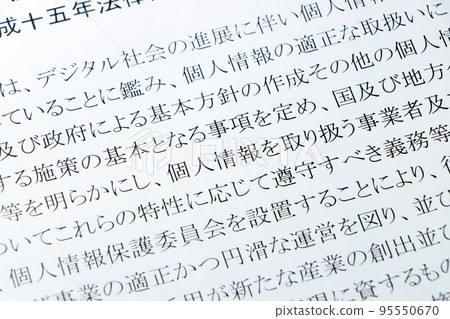 成十五年法律
は、デジタル社会の進展に伴い個人情報
ていることに鑑み、個人情報の適正な取扱いに
及び政府による基本方針の作成その他の個人情
する施策の基本となる事項を定め、国及び地方
等を明らかにし、個人情報を取り扱う事業者及
ついてこれらの特性に応じて遵守すべき義務等
個人情報保護委員会を設置することにより、
事業の適正かつ円滑な運営を図り、並び
用が新たな産業の創出並び
に資するもの
PIXTA
95550670